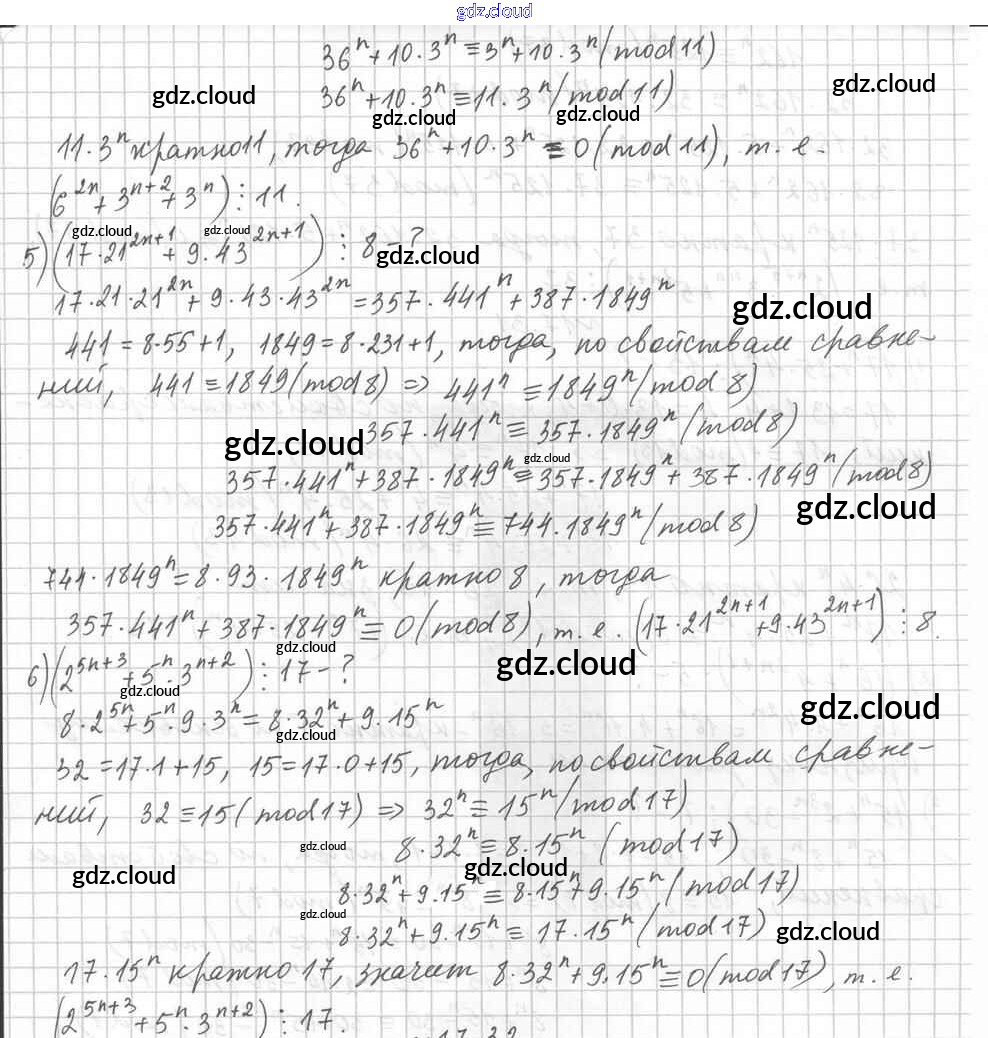 gdz.cloud
36ⁿ + 10·3ⁿ ≡ 3ⁿ + 10·3ⁿ (mod 11)
gdz.cloud
gdz.cloud
36ⁿ + 10·3ⁿ ≡ 11·3ⁿ (mod 11)
gdz.cloud gdz.cloud
11·3ⁿ кратно 11, тогда 36ⁿ + 10·3ⁿ ≡ 0 (mod 11), т. е.
(6²ⁿ + 3ⁿ⁺² + 3ⁿ) ⋮ 11.
gdz.cloud gdz.cloud
5) (17·21²ⁿ⁺¹ + 9·43²ⁿ⁺¹) ⋮ 8 - ?
gdz.cloud
17·21·21²ⁿ + 9·43·43²ⁿ = 357·441ⁿ + 387·1849ⁿ
gdz.cloud
441 = 8·55+1, 1849 = 8·231+1, тогда, по свойствам сравне-
ний, 441 ≡ 1849 (mod 8) => 441ⁿ ≡ 1849ⁿ (mod 8)
357·441ⁿ ≡ 357·1849ⁿ (mod 8)
gdz.cloud
gdz.cloud
357·441ⁿ + 387·1849ⁿ ≡ 357·1849ⁿ + 387·1849ⁿ (mod 8)
gdz.cloud
357·441ⁿ + 387·1849ⁿ ≡ 744·1849ⁿ (mod 8)
744·1849ⁿ = 8·93·1849ⁿ кратно 8, тогда
357·441ⁿ + 387·1849ⁿ ≡ 0 (mod 8), т. е. (17·21²ⁿ⁺¹ + 9·43²ⁿ⁺¹) ⋮ 8.
gdz.cloud
6) (2⁵ⁿ⁺³ + 5ⁿ·3ⁿ⁺²) ⋮ 17 - ?
gdz.cloud gdz.cloud
8·2⁵ⁿ + 5ⁿ·9·3ⁿ = 8·32ⁿ + 9·15ⁿ
gdz.cloud
gdz.cloud
32 = 17·1+15, 15 = 17·0+15, тогда, по свойствам сравне-
ний, 32 ≡ 15 (mod 17) => 32ⁿ ≡ 15ⁿ (mod 17)
8·32ⁿ ≡ 8·15ⁿ (mod 17)
gdz.cloud
gdz.cloud gdz.cloud
8·32ⁿ + 9·15ⁿ ≡ 8·15ⁿ + 9·15ⁿ (mod 17)
gdz.cloud
8·32ⁿ + 9·15ⁿ ≡ 17·15ⁿ (mod 17)
gdz.cloud
gdz.cloud
17·15ⁿ кратно 17, значит 8·32ⁿ + 9·15ⁿ ≡ 0 (mod 17), т. е.
(2⁵ⁿ⁺³ + 5ⁿ·3ⁿ⁺²) ⋮ 17.